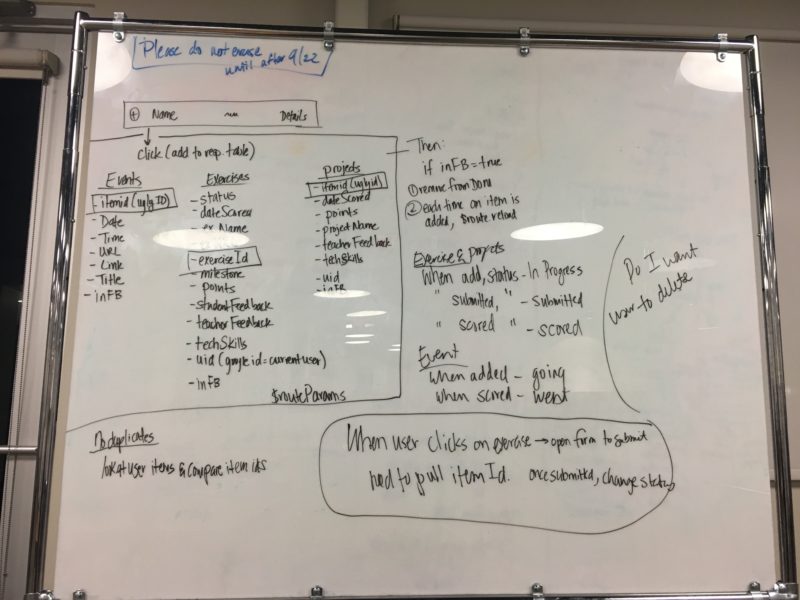 Please do not erase
until after 9/22
+ Name ~~ Details
click (add to resp. table)
Events
- itemid (ugly ID)
- Date
- Time
- URL
- Link
- Title
- inFB
Exercises
- status
- dateScored
- ex Name
- exerciseId
- milestone
- points
- studentFeedback
- teacherFeedback
- techSkills
- uid (google id = currentuser)
- inFB
$routeParams
projects
- itemid (uglyid)
- dateScored
- points
- projectName
- teacherFeedback
- techSkills
- uid
- inFB
Then:
if inFB = true
① remove from DOM
② each time an item is
added, $route reload
Exercise & projects
When add, status - In Progress
" submitted, " - submitted
" scored " - scored
Event
when added - going
when scored - went
Do I want
user to delete
No duplicates
look at user items & compare item ids
When user clicks on exercise → open form to submit
need to pull itemId. once submitted, change status